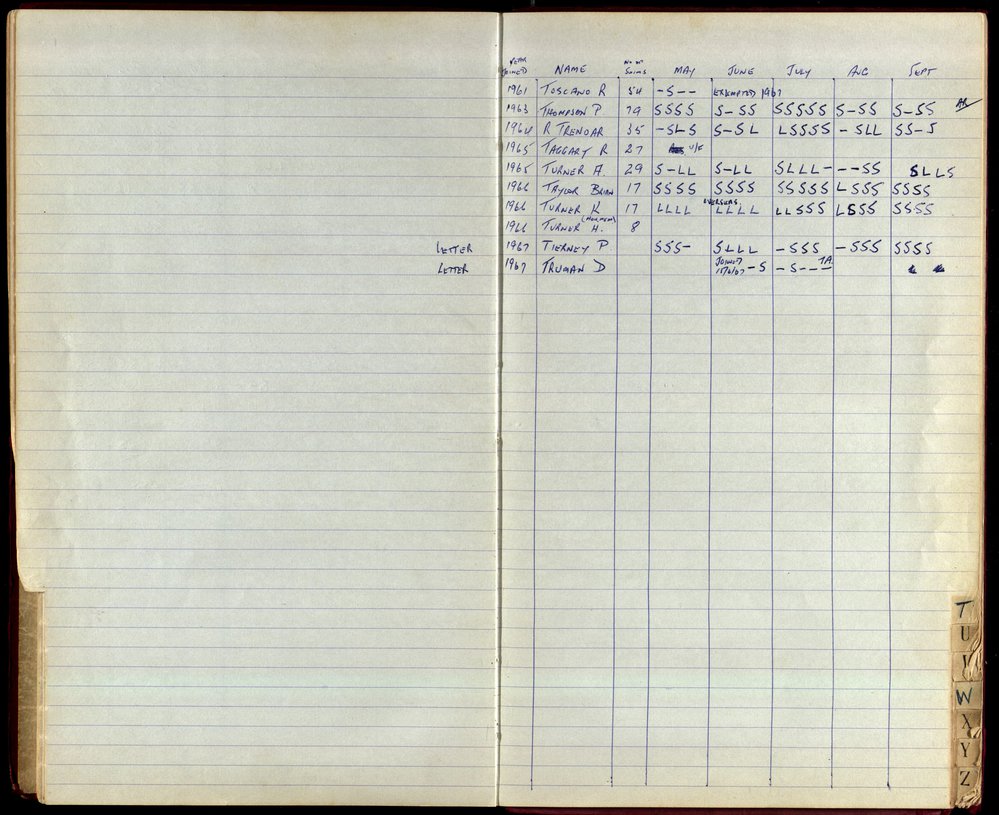 YEAR JOINED NAME No OF SWIMS MAY JUNE JULY AUG SEPT
1961 TOSCANO R 54 -S-- EXEMPTED 1967
1963 THOMPSON P 79 SSSS S-SS SSSSS S-SS S-SS
1964 R TRENDAR 35 -SLS S-SL LSSSS -SLL SS-S
1965 TAGGART R 27 U/F
1965 TURNER A. 29 S-LL S-LL SLLL- --SS SLLS
1966 TAYLOR BRIAN 17 SSSS SSSS SSSSS LSSS SSSS
1966 TURNER K 17 LLLL OVERSEAS LLLL LLSSS LSSS SSSS
1966 TURNER H. 8
LETTER 1967 TIERNEY P SSS- SLLL -SSS -SSS SSSS
LETTER 1967 TRUMAN D JOINED 15/6/67 -S -S--- TA.
T
U
W
X
Y
Z